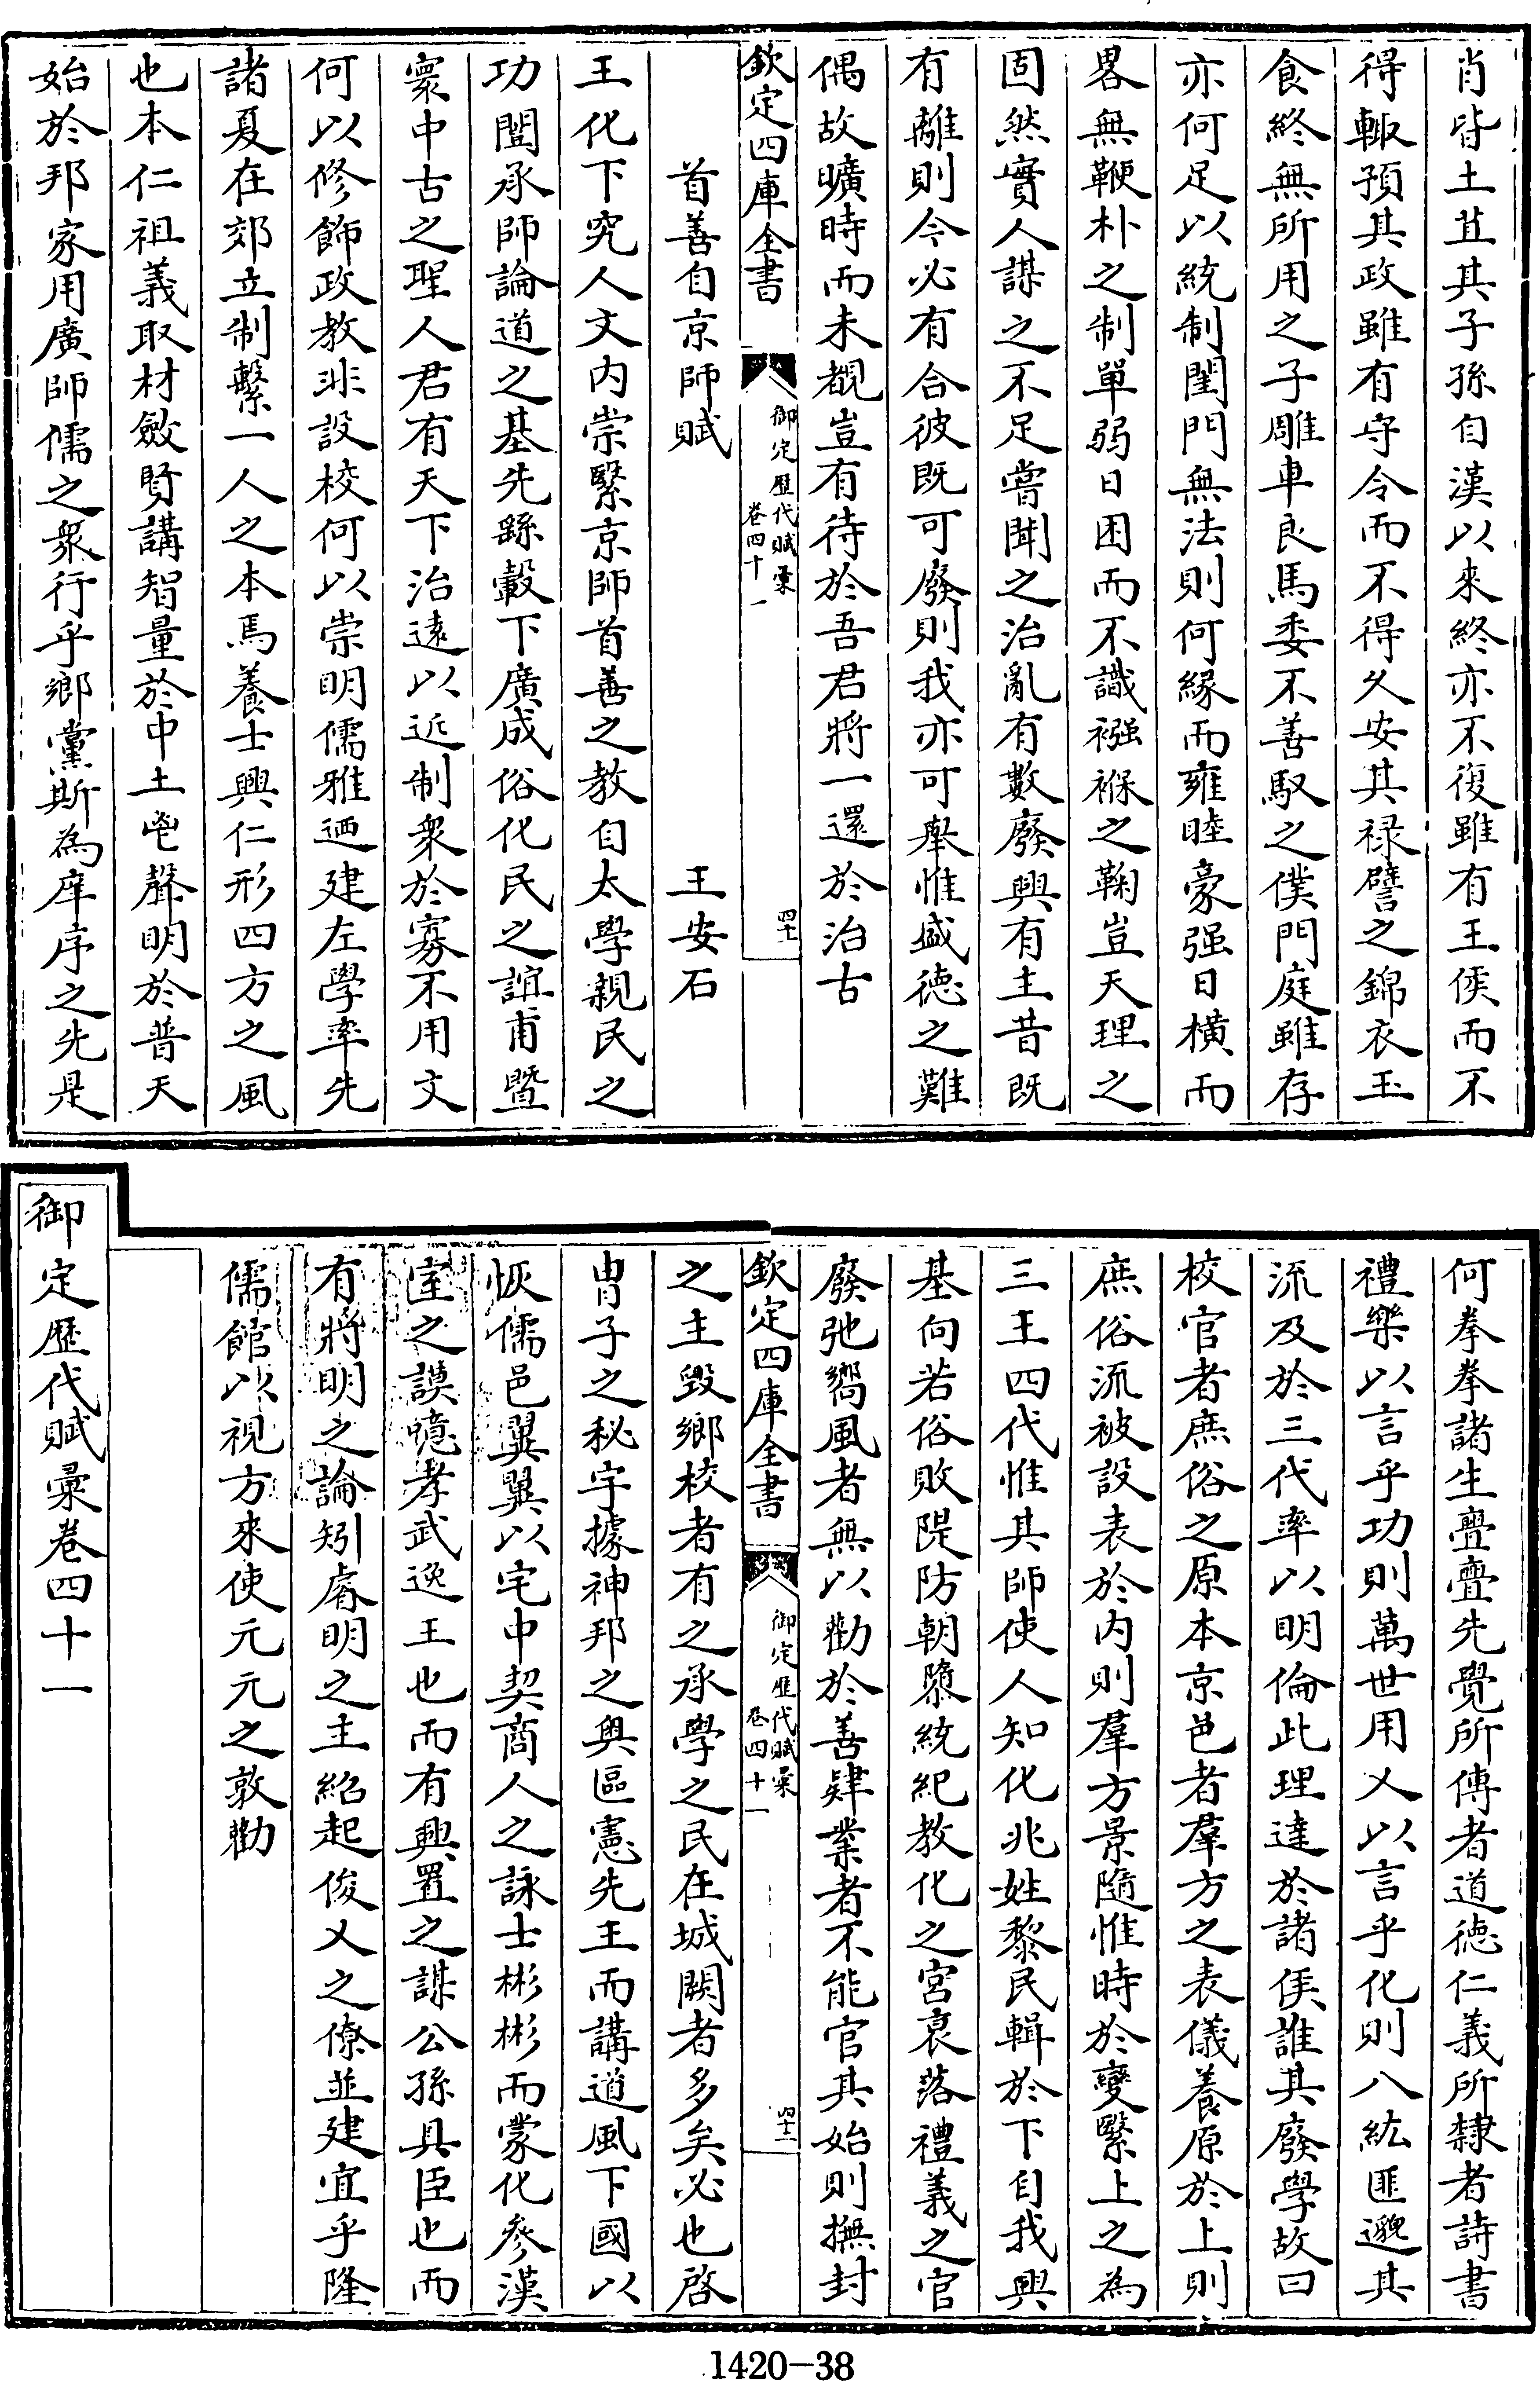 肖皆土苴其子孫自漢以來終亦不復雖有王侯而不
得輙預其政雖有守令而不得久安其禄譬之錦衣玉
食終無所用之子雕車良馬委不善馭之僕門庭雖存
亦何足以統制閨門無法則何緣而雍睦豪强日横而
畧無鞭朴之制單弱日困而不識襁褓之鞠豈天理之
固然實人謀之不足嘗聞之治亂有數廢興有主昔既
有離則今必有合彼既可廢則我亦可舉惟盛德之難
偶故曠時而未覩豈有待於吾君將一還於治古
欽定四庫全書
御定歷代賦彙
卷四十一
四十一
首善自京師賦
王安石
王化下究人文内崇繄京師首善之教自太學親民之
功闡承師論道之基先繇轂下廣成俗化民之誼甫暨
寰中古之聖人君有天下治遠以近制衆於寡不用文
何以修飾政教非設校何以崇明儒雅迺建左學率先
諸夏在郊立制繫一人之本焉養士興仁形四方之風
也本仁祖義取材斂賢講智量於中土邕聲明於普天
始於邦家用廣師儒之衆行乎鄉黨斯為庠序之先是
何拳拳諸生亹亹先覺所傳者道德仁義所隸者詩書
禮樂以言乎功則萬世用乂以言乎化則八紘匪邈其
流及於三代率以明倫此理達於諸侯誰其廢學故曰
校官者庶俗之原本京邑者羣方之表儀養原於上則
庶俗流被設表於内則羣方景隨惟時於變繄上之為
三王四代惟其師使人知化兆姓黎民輯於下自我興
基向若俗敗隄防朝隳統紀教化之宫衰落禮義之官
廢弛嚮風者無以勸於善肄業者不能官其始則撫封
欽定四庫全書
御定歷代賦彙
卷四十一
四十二
之主毁鄉校者有之承學之民在城闕者多矣必也啓
胄子之秘宇據神邦之奥區憲先王而講道風下國以
恢儒邑翼翼以宅中契商人之詠士彬彬而蒙化參漢
室之謨噫孝武逸王也而有興置之謀公孫具臣也而
有將明之論矧睿明之主紹起俊乂之僚並建宜乎隆
儒館以視方來使元元之敦勸
御定歷代賦彙卷四十一
1420-38